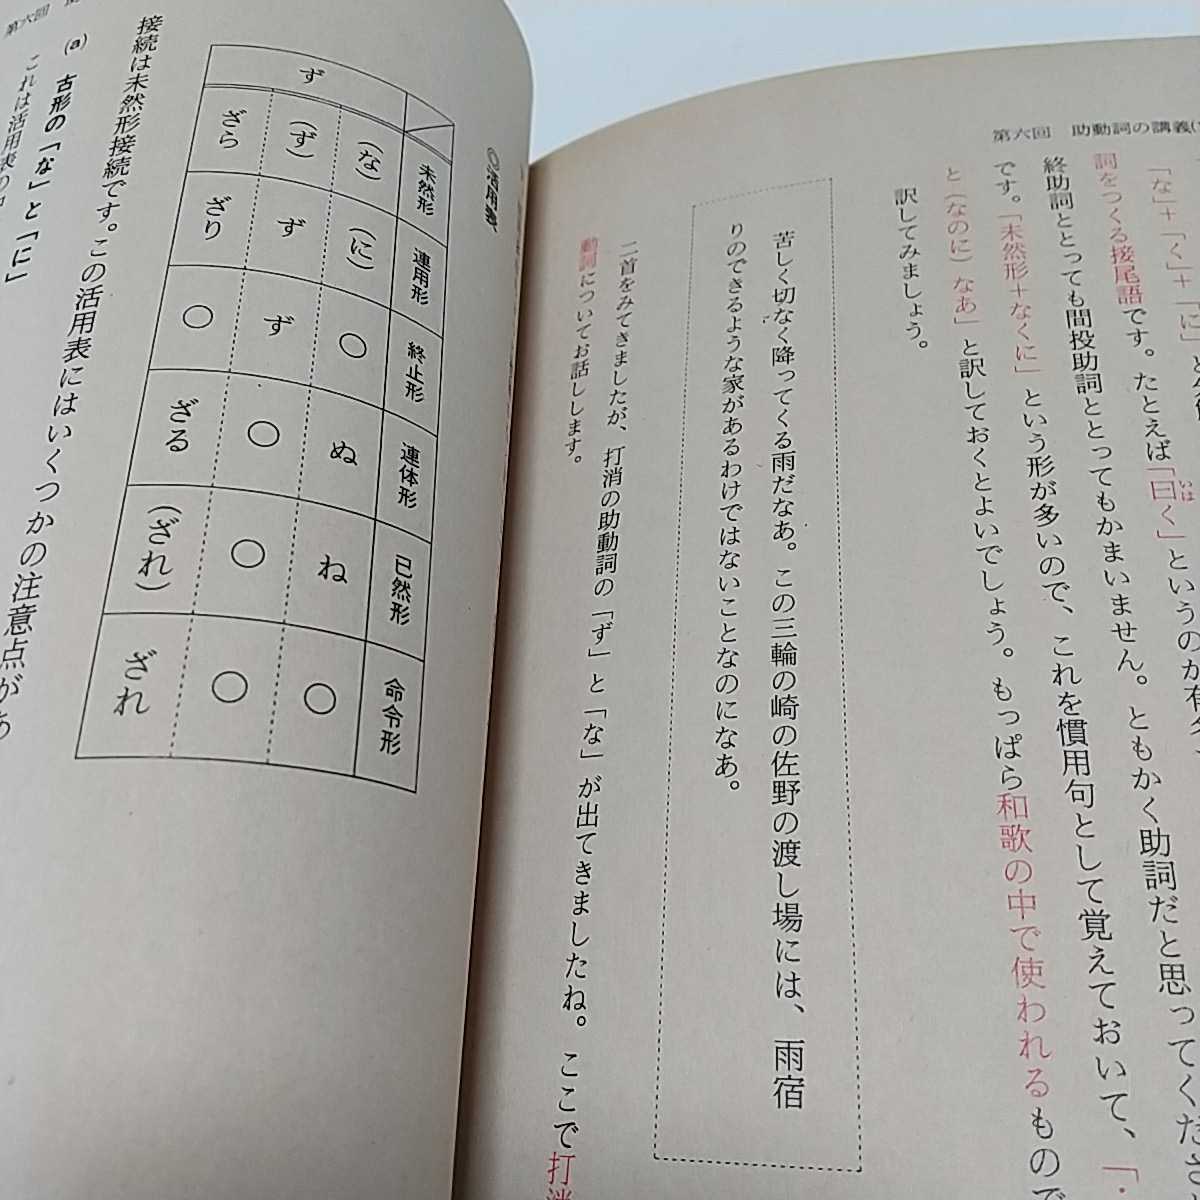 第六回 助動詞の講義(
「な」+「く」+「に」と
詞をつくる接尾語です。たとえば「曰く」というのが有名
いは
終助詞ととっても間投助詞ととってもかまいません。ともかく助詞だと思ってくださ
です。「未然形+なくに」という形が多いので、これを慣用句として覚えておいて、「
と(なのに)なあ」と訳しておくとよいでしょう。もっぱら和歌の中で使われるもので
訳してみましょう。
苦しく切なく降ってくる雨だなあ。この三輪の崎の佐野の渡し場には、雨宿
りのできるような家があるわけではないことなのになあ。
二首をみてきましたが、打消の助動詞の「ず」と「な」が出てきましたね。ここで打消
動詞についてお話しします。
第六回
◎活用表
未然形 連用形 終止形 連体形 已然形 命令形
(な) (に) ○ ぬ ね ○
ず
(ず) ず ず ○ ○ ○
ざら ざり ○ ざる (ざれ) ざれ
接続は未然形接続です。この活用表にはいくつかの注意点があ
(a) 古形の「な」と「に」
これは活用表の